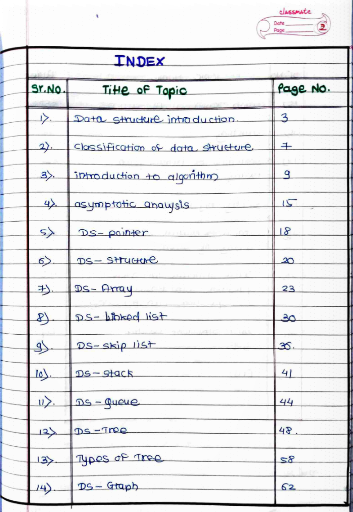 classmate
Date
Page 2
INDEX
Sr.No. Title of Topic Page No.
1). Data structure introduction. 3
2). classification of data structure 7
3). introduction to algorithm 9
4). asymptotic anaysis 15
5). DS-pointer 18
6). DS-structure 20
7). DS-Array 23
8). DS-linked list 30
9). DS-skip list 35.
10). DS-stack 41
11). DS-queue 44
12). DS-Tree 48.
13). Types of Tree 58
14). DS-Graph 62